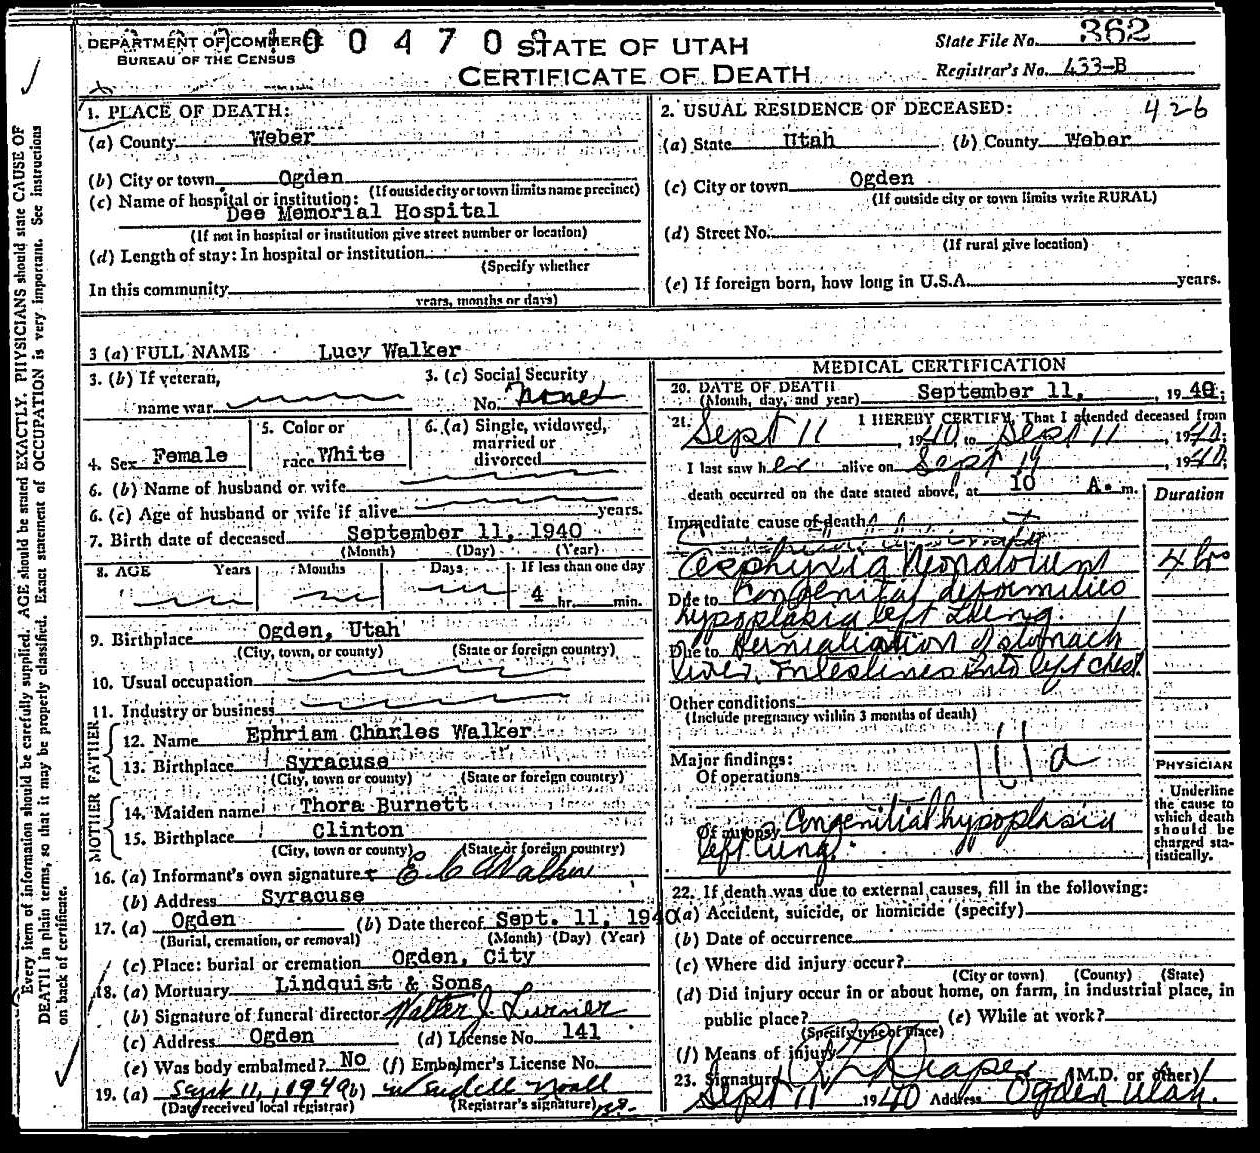 DEPARTMENT OF COMMERCE
BUREAU OF THE CENSUS
0 0 4 7 0
STATE OF UTAH
CERTIFICATE OF DEATH
State File No. 362
Registrar's No. 433-B
426
Every item of information should be carefully supplied. AGE should be stated EXACTLY. PHYSICIANS should state CAUSE OF
DEATH in plain terms, so that it may be properly classified. Exact statement of OCCUPATION is very important. See instructions
on back of certificate.
1. PLACE OF DEATH:
(a) County Weber
(b) City or town Ogden
(If outside city or town limits name precinct)
(c) Name of hospital or institution:
Dee Memorial Hospital
(If not in hospital or institution give street number or location)
(d) Length of stay: In hospital or institution
(Specify whether
In this community
years, months or days)
2. USUAL RESIDENCE OF DECEASED:
(a) State Utah (b) County Weber
(c) City or town Ogden
(If outside city or town limits write RURAL)
(d) Street No.
(If rural give location)
(e) If foreign born, how long in U.S.A. years.
3 (a) FULL NAME Lucy Walker
3. (b) If veteran,
name war
3. (c) Social Security
No. none
4. Sex Female
5. Color or
race White
6. (a) Single, widowed,
married or
divorced
6. (b) Name of husband or wife
6. (c) Age of husband or wife if alive years.
7. Birth date of deceased September 11, 1940
(Month) (Day) (Year)
8. AGE Years Months Days If less than one day
4 hr. min.
9. Birthplace Ogden, Utah
(City, town, or county) (State or foreign country)
10. Usual occupation
11. Industry or business
FATHER
12. Name Ephriam Charles Walker
13. Birthplace Syracuse
(City, town or county) (State or foreign country)
MOTHER
14. Maiden name Thora Burnett
15. Birthplace Clinton
(City, town or county) (State or foreign country)
16. (a) Informant's own signature E C Walker
(b) Address Syracuse
17. (a) Ogden (b) Date thereof Sept. 11, 1940
(Burial, cremation, or removal) (Month) (Day) (Year)
(c) Place: burial or cremation Ogden, City
18. (a) Mortuary Lindquist & Sons
(b) Signature of funeral director Walter J. Turner
(c) Address Ogden (d) License No. 141
(e) Was body embalmed? No (f) Embalmer's License No.
19. (a) Sept 11, 1940 (b) Wendell Noall
(Day received local registrar) (Registrar's signature)
MEDICAL CERTIFICATION
20. DATE OF DEATH September 11, 1940;
(Month, day, and year)
21. I HEREBY CERTIFY, That I attended deceased from
Sept 11, 1940, to Sept 11, 1940;
I last saw her alive on Sept 1940;
death occurred on the date stated above, at 10 A. m.
Duration
Immediate cause of death
Asphyxia Neonatorum 4 hrs
Due to Congenital deformities
hypoplasia left Lung.
Due to Herniation of stomach
liver, intestines into left chest.
Other conditions
(Include pregnancy within 3 months of death)
Major findings:
Of operations
Of autopsy Congenitial hypoplasia
left lung.
PHYSICIAN
Underline
the cause to
which death
should be
charged sta-
tistically.
22. If death was due to external causes, fill in the following:
(a) Accident, suicide, or homicide (specify)
(b) Date of occurrence
(c) Where did injury occur?
(City or town) (County) (State)
(d) Did injury occur in or about home, on farm, in industrial place, in
public place? (e) While at work?
(Specify type of place)
(f) Means of injury
23. Signature Draper (M.D. or other)
Sept 11 1940 Address Ogden Utah.